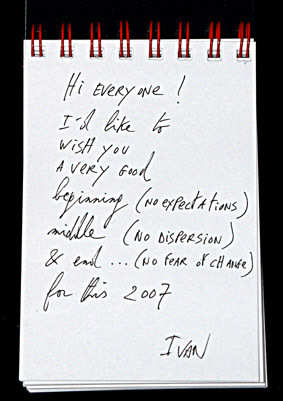 Hi EVERYONE!
I'd like to
WISH YOU
A VERY GOOD
beginning (NO EXPECTATIONS)
middle (NO DISPERSION)
& end ... (NO FEAR OF CHANGE)
for this 2007
IVAN